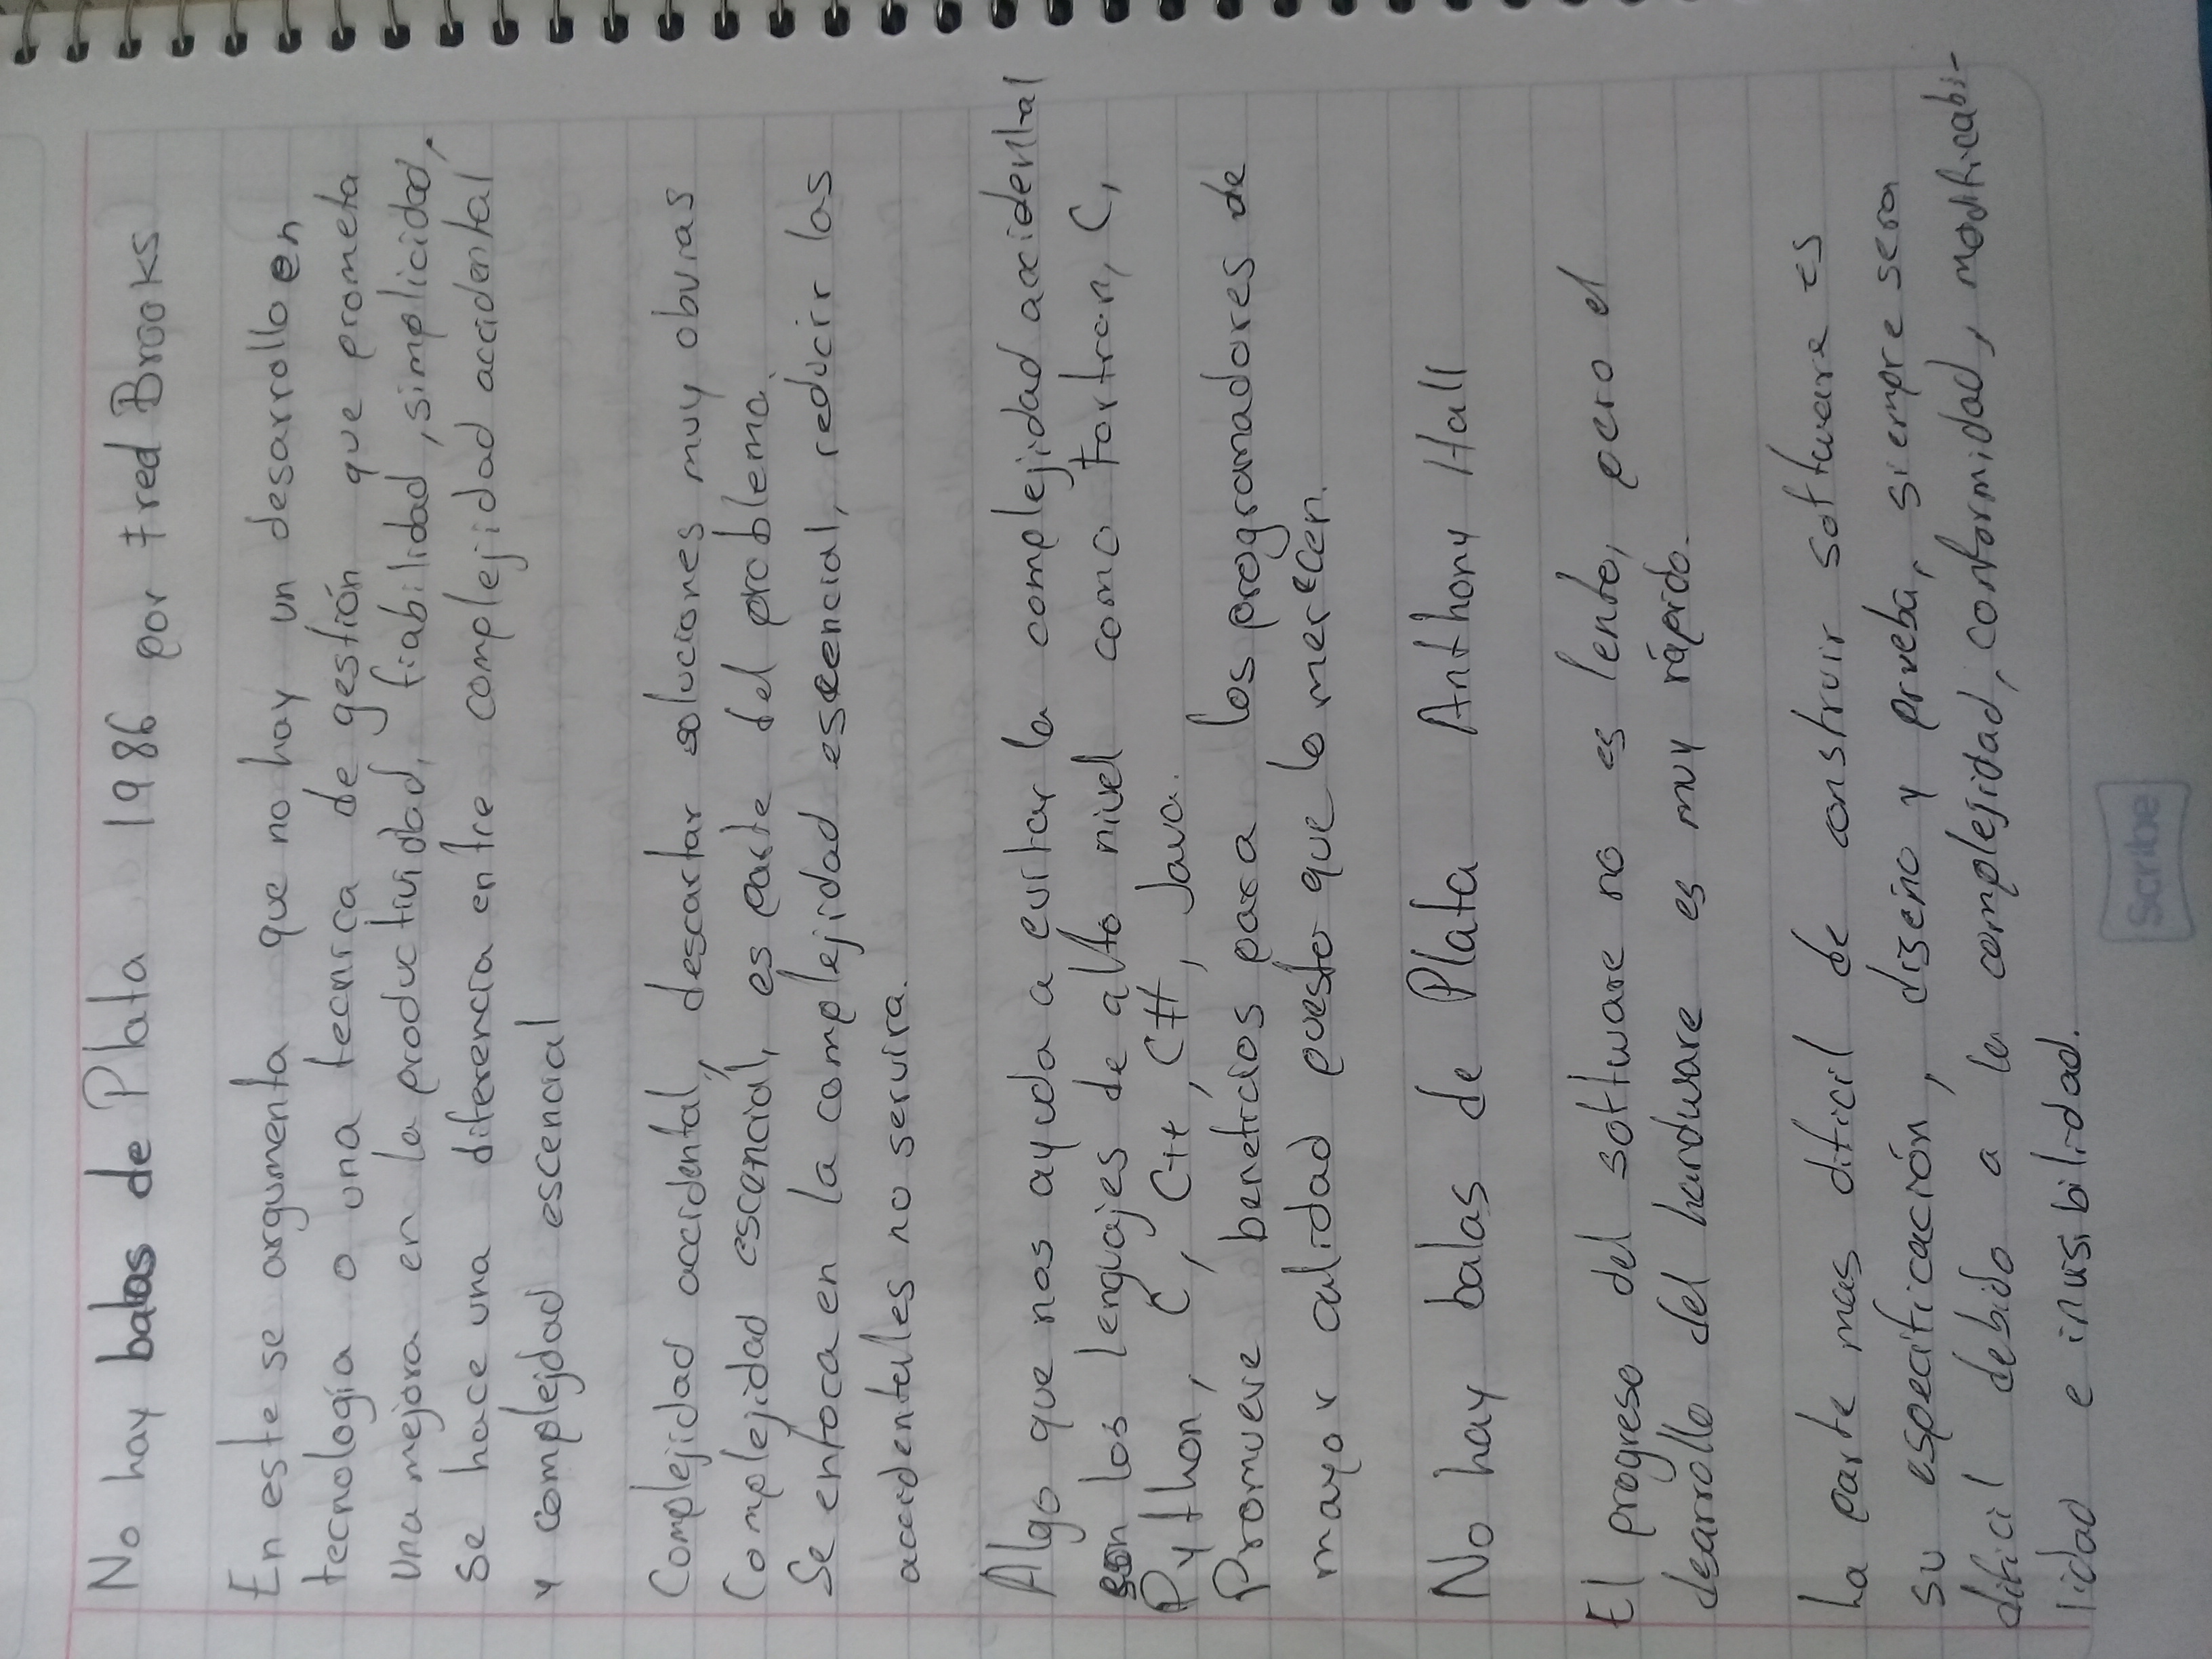 No hay balas de Plata 1986 por Fred Brooks
En este se argumenta que no hay un desarrollo en
tecnología o una tecnica de gestión que prometa
una mejora en la productividad, fiabilidad, simplicidad,
se hace una diferencia entre complejidad accidental
y complejdad escencial
Complejidad accidental, descartar soluciones muy obvias
Complejidad escencial, es parte del problema.
Se enfoca en la complejidad escencial, reducir las
accidentales no servira.
Algo que nos ayuda a evitar la complejidad accidental
son los lenguajes de alto nivel como Fortran, C,
Python, C, C++, C#, Java.
Promueve beneficios para los programadores de
mayor calidad puesto que lo merecen.
No hay balas de Plata Anthony Hall
El progreso del software no es lento, pero el
dearrollo del hardware es muy rápido.
La parte mas dificil de construir software es
su especificación, diseño y prueba, siempre sera
dificil debido a la complejidad, conformidad, modificabi-
lidad e invisibilidad.
Scribe